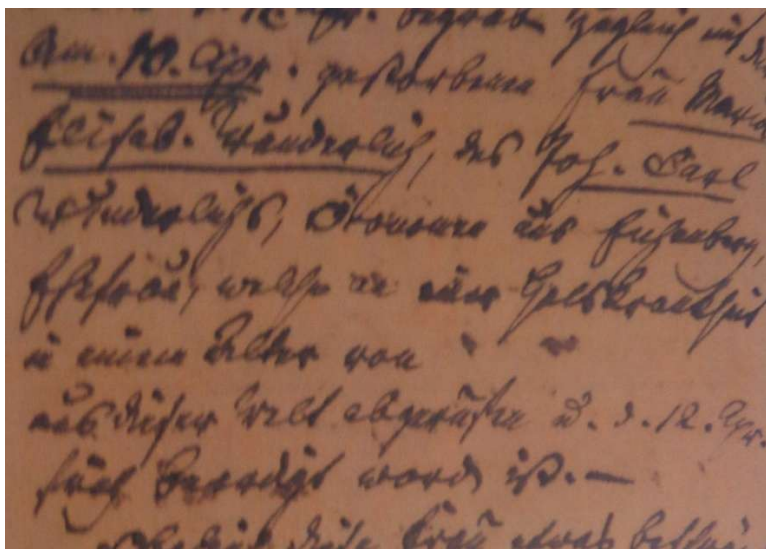 begrab zugleich mit der
Am. 10. Apr. gestorbenen Frau Maria
Elisab. Wunderlich, des Joh. Carl
Wunderlichs, Öconomen aus Eichenberg,
Ehefrau, welche an einer Halskrankheit
in einem Alter von
aus dieser Welt abgerufen u. d. 12. Apr.
früh beerdigt word ist. —
diese Frau etwas